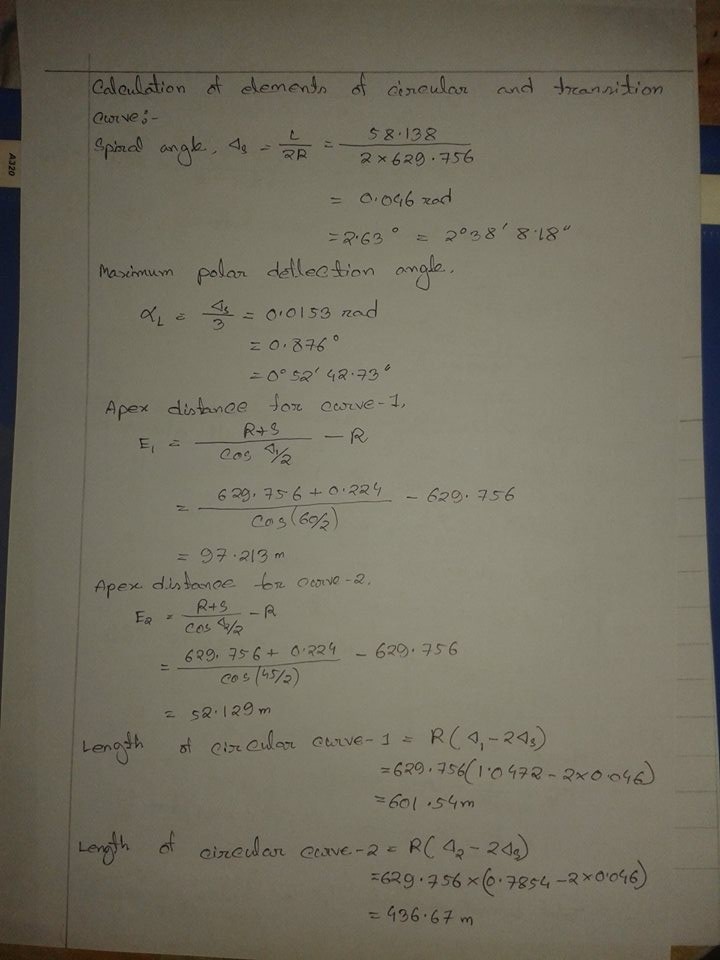 A320
Calculation of elements of circular and transition
curve:-
Spiral angle, Δs = L/2R = 58.138/(2×629.756)
= 0.046 rad
= 2.63° = 2°38' 8.18"
Maximum polar deflection angle,
αL = Δs/3 = 0.0153 rad
= 0.876°
= 0° 52' 42.73"
Apex distance for curve-1,
E1 = (R+S)/(cos Δ1/2) - R
= (629.756 + 0.224)/(cos(60/2)) - 629.756
= 97.213 m
Apex distance for curve-2,
E2 = (R+S)/(cos Δ2/2) - R
= (629.756 + 0.224)/(cos(45/2)) - 629.756
= 52.129 m
Length of circular curve-1 = R(Δ1 - 2Δs)
= 629.756(1.0472 - 2×0.046)
= 601.54 m
Length of circular curve-2 = R(Δ2 - 2Δs)
= 629.756×(0.7854 - 2×0.046)
= 436.67 m